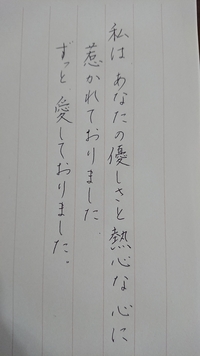 私は あなたの優しさと熱心な心に
惹かれておりました.
ずっと 愛しておりました。